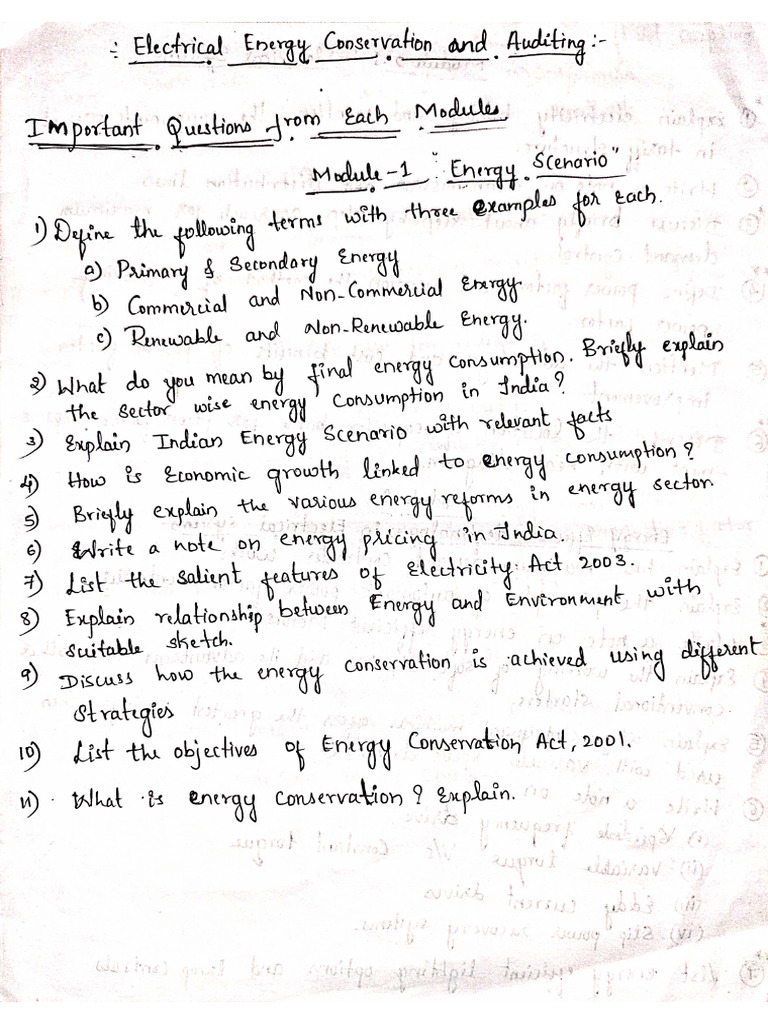 :- Electrical Energy Conservation and Auditing:-
Important Questions from Each Modules
Module-1 "Energy Scenario"
1) Define the following terms with three examples for Each.
a) Primary & Secondary Energy
b) Commercial and Non-Commercial Energy
c) Renewable and Non-Renewable Energy.
2) What do you mean by final energy consumption. Briefly explain
the sector wise energy consumption in India?
3) Explain Indian Energy Scenario with relevant facts
4) How is Economic growth linked to energy consumption?
5) Briefly explain the various energy reforms in energy sector.
6) Write a note on energy pricing in India.
7) List the salient features of Electricity Act 2003.
8) Explain relationship between Energy and Environment with
suitable sketch.
9) Discuss how the energy conservation is achieved using different
strategies
10) List the objectives of Energy Conservation Act, 2001.
11) What is energy conservation? Explain.